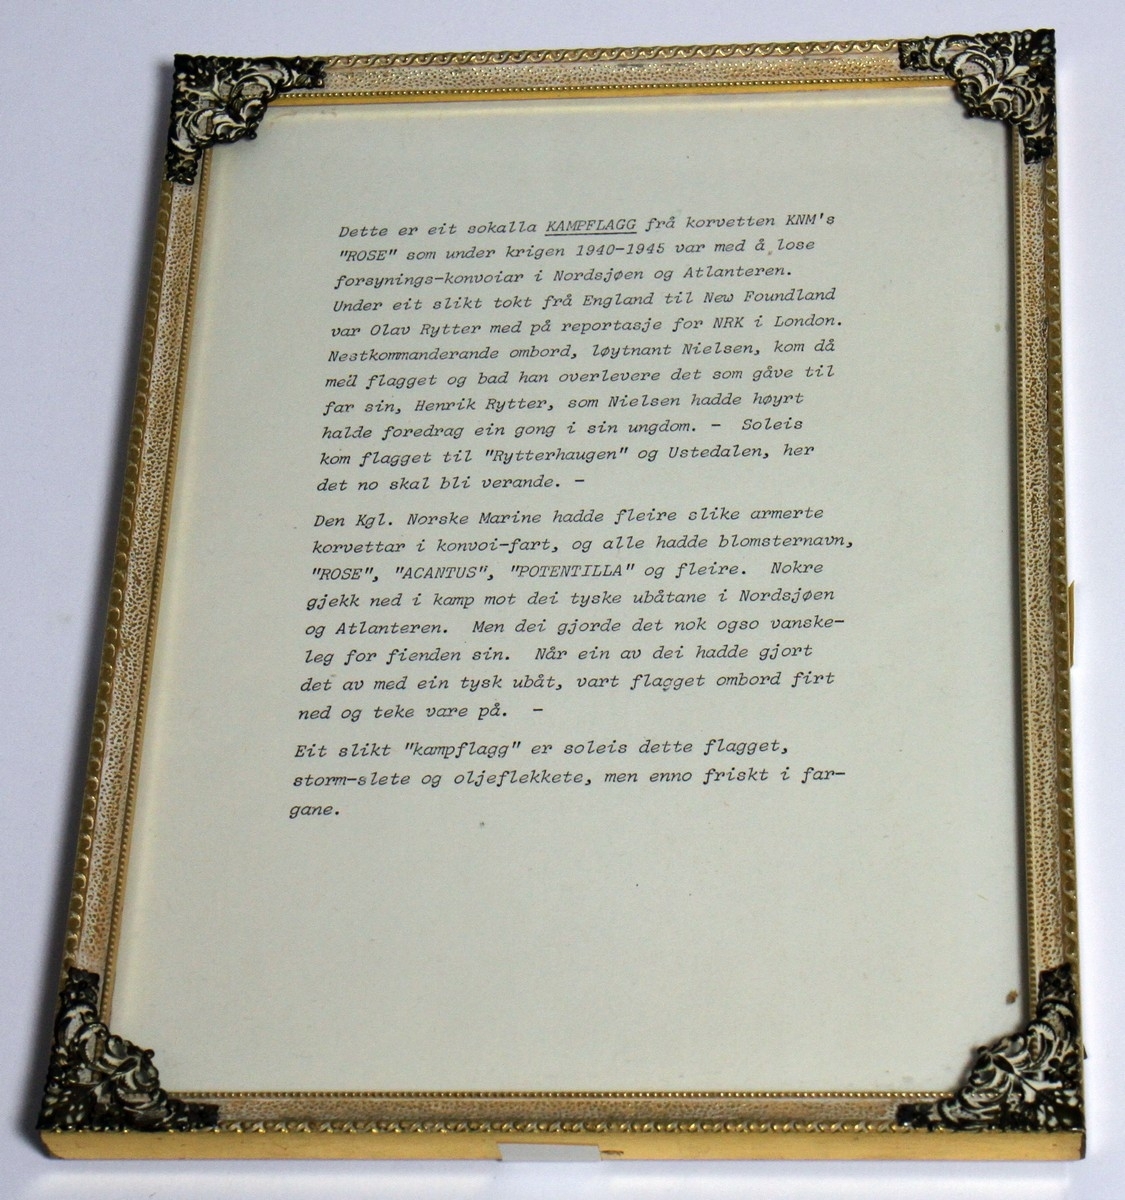 Dette er eit sokalla KAMPFLAGG frå korvetten KNM's
"ROSE" som under krigen 1940-1945 var med å lose
forsynings-konvoiar i Nordsjøen og Atlanteren.
Under eit slikt tokt frå England til New Foundland
var Olav Rytter med på reportasje for NRK i London.
Nestkommanderande ombord, løytnant Nielsen, kom då
med flagget og bad han overlevere det som gåve til
far sin, Henrik Rytter, som Nielsen hadde høyrt
halde foredrag ein gong i sin ungdom. - Soleis
kom flagget til "Rytterhaugen" og Ustedalen, her
det no skal bli verande. -
Den Kgl. Norske Marine hadde fleire slike armerte
korvettar i konvoi-fart, og alle hadde blomsternavn,
"ROSE", "ACANTUS", "POTENTILLA" og fleire. Nokre
gjekk ned i kamp mot dei tyske ubåtane i Nordsjøen
og Atlanteren. Men dei gjorde det nok ogso vanske-
leg for fienden sin. Når ein av dei hadde gjort
det av med ein tysk ubåt, vart flagget ombord firt
ned og teke vare på. -
Eit slikt "kampflagg" er soleis dette flagget,
storm-slete og oljeflekkete, men enno friskt i far-
gane.